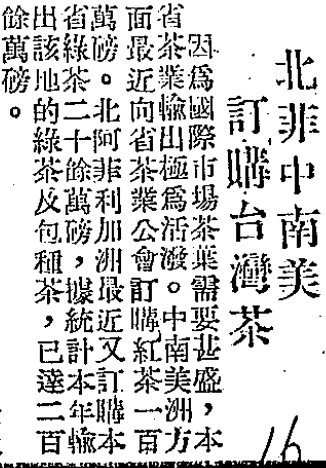 北非中南美
訂購台灣茶
因爲國際市場茶葉需要甚盛，本
省茶業輸出極爲活潑。中南美洲方
面最近向省茶業公會訂購紅茶一百
萬磅。北阿菲利加洲最近又訂購本
省綠茶二十餘萬磅，據統計本年輸
出該地的綠茶及包種茶，已達二百
餘萬磅。
16